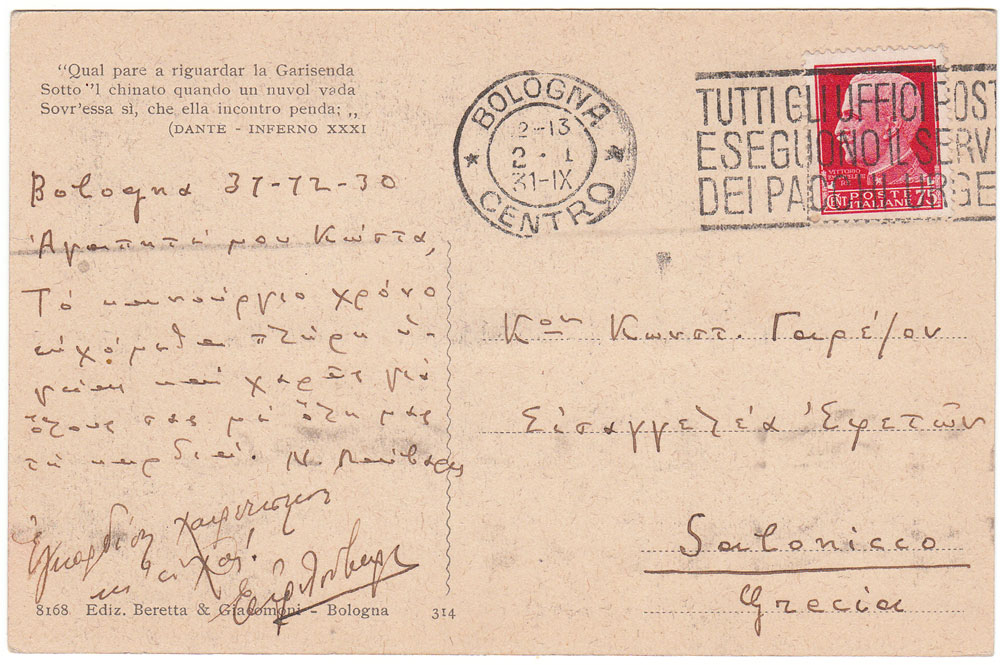 "Qual pare a riguardar la Garisenda
Sotto 'l chinato quando un nuvol vada
Sovr'essa sì, che ella incontro penda; „
(DANTE - INFERNO XXXI
BOLOGNA
12-13
2 · I
31-IX
CENTRO
TUTTI GLI UFFICI POST
ESEGUONO IL SERVI
DEI PACCHI URGE
VITTORIO
POSTE
ITALIANE
CENT 75
Bologna 31-12-30
Ἀγαπητέ μου Κώστα,
Τὸ καινούργιο χρόνο
εὐχόμεθα πλήρη ὑ-
γείαν καὶ χαρὲς γιὰ
ὅλους σας μὲ ὅλη μας
τὴ καρδιά. Ν
Ἐγκαρδίους
Κον Κωνστ.
Εἰσαγγελέα Ἐφετῶν
Salonicco
Grecia
8168 Ediz. Beretta & Giacomoni - Bologna 314